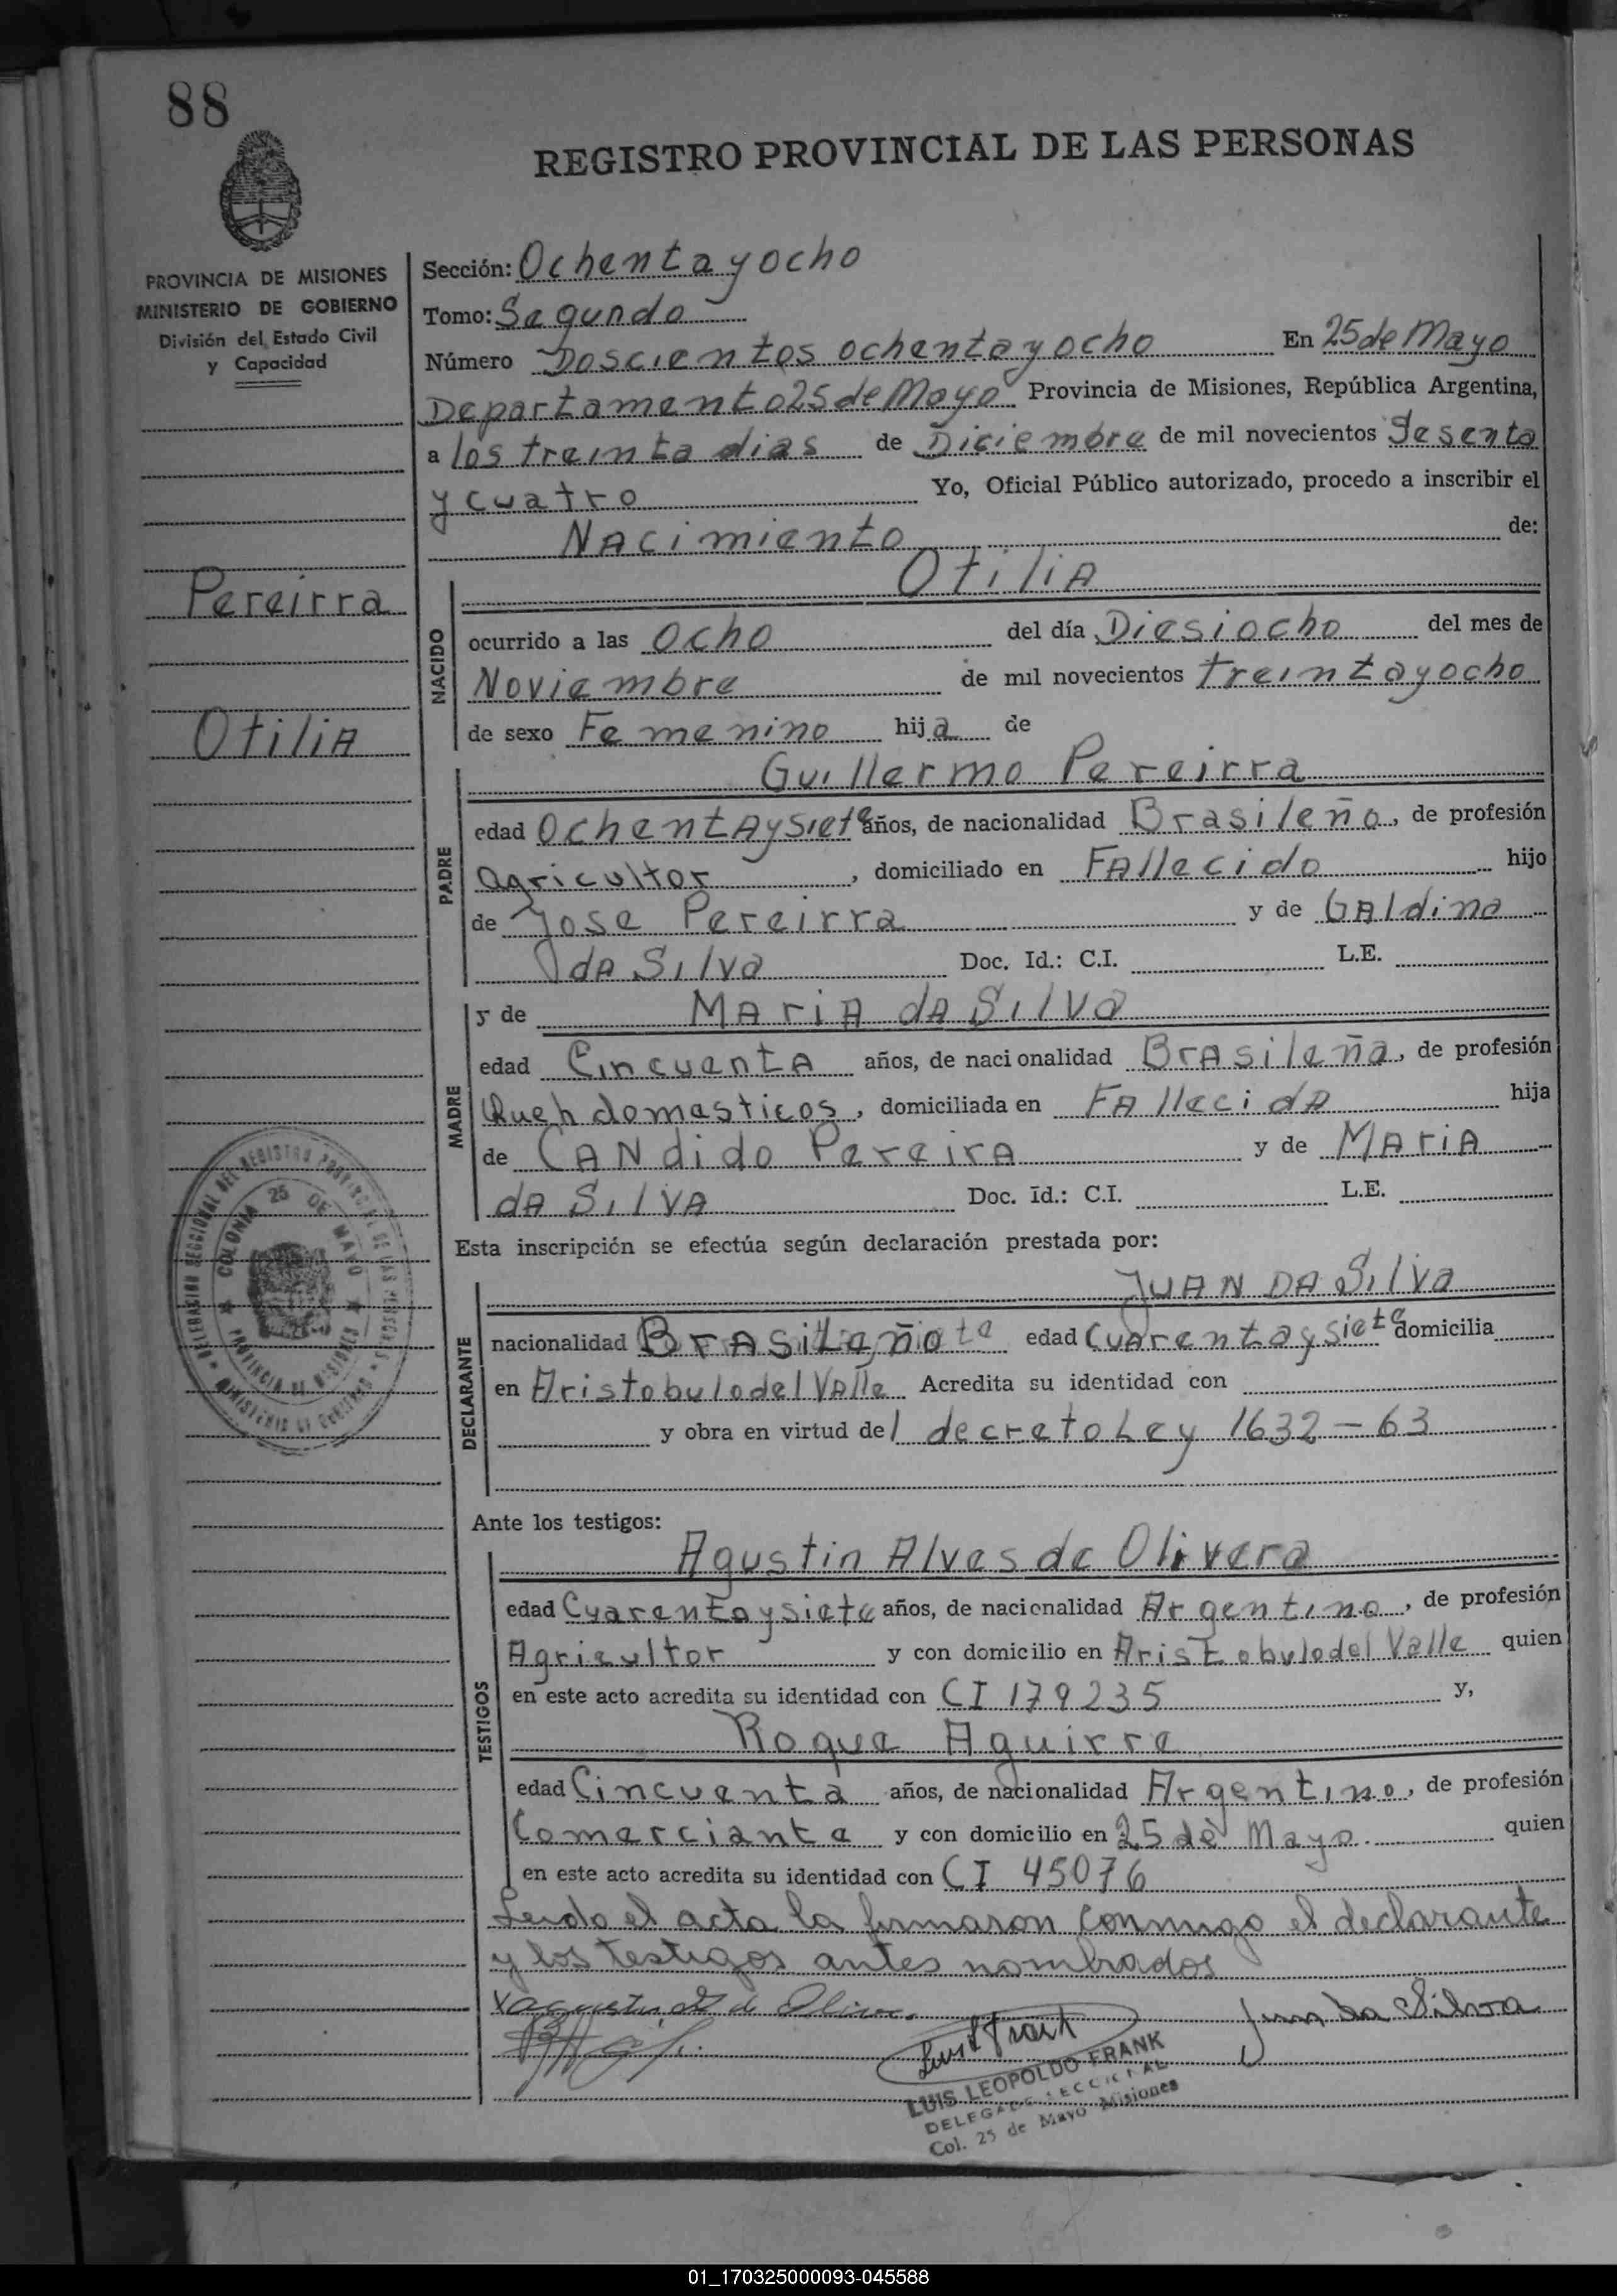 88
REGISTRO PROVINCIAL DE LAS PERSONAS
PROVINCIA DE MISIONES
MINISTERIO DE GOBIERNO
División del Estado Civil
y Capacidad
Sección: Ochenta y ocho
Tomo: Segundo
Número Doscientos ochenta y ocho En 25 de Mayo
Departamento 25 de Mayo Provincia de Misiones, República Argentina,
a los treinta dias de Diciembre de mil novecientos Sesenta
y cuatro Yo, Oficial Público autorizado, procedo a inscribir el
Nacimiento de:
Pereirra
Otilia
NACIDO
Otilia
ocurrido a las Ocho del día Diesiocho del mes de
Noviembre de mil novecientos treinta y ocho
de sexo Femenino hija de
PADRE
Guillermo Pereirra
edad Ochenta y siete años, de nacionalidad Brasileño, de profesión
Agricultor, domiciliado en Fallecido hijo
de Jose Pereirra y de Galdina
da Silva Doc. Id.: C.I. L.E.
MADRE
y de Maria da Silva
edad Cincuenta años, de nacionalidad Brasileña, de profesión
Queh domesticos, domiciliada en Fallecida hija
de Candido Pereira y de Maria
da Silva Doc. Id.: C.I. L.E.
DELEGACION SECCIONAL DEL REGISTRO PROVINCIAL DE LAS PERSONAS
COLONIA 25 DE MAYO
PROVINCIA DE MISIONES
MINISTERIO DE GOBIERNO
Esta inscripción se efectúa según declaración prestada por:
DECLARANTE
Juan da Silva
nacionalidad Brasileño edad Cuarenta y siete domicilia
en Aristobulo del Valle Acredita su identidad con
y obra en virtud del decreto Ley 1632-63
Ante los testigos:
TESTIGOS
Agustin Alves de Olivera
edad Cuarenta y siete años, de nacionalidad Argentino, de profesión
Agricultor y con domicilio en Aristobulo del Valle quien
en este acto acredita su identidad con CI 179235 y,
Roque Aguirre
edad Cincuenta años, de nacionalidad Argentino, de profesión
Comerciante y con domicilio en 25 de Mayo. quien
en este acto acredita su identidad con CI 45076
Leido el acta la firmaron conmigo el declarante
y los testigos antes nombrados
Juan da Silva
LUIS LEOPOLDO FRANK
DELEGADO SECCIONAL
Col. 25 de Mayo Misiones
01_170325000093-045588